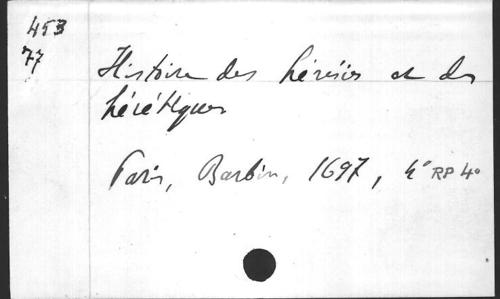 453
77
Histoire des hérésies et des
hérétiques
Paris, Barbin, 1697, 4° RP 4°